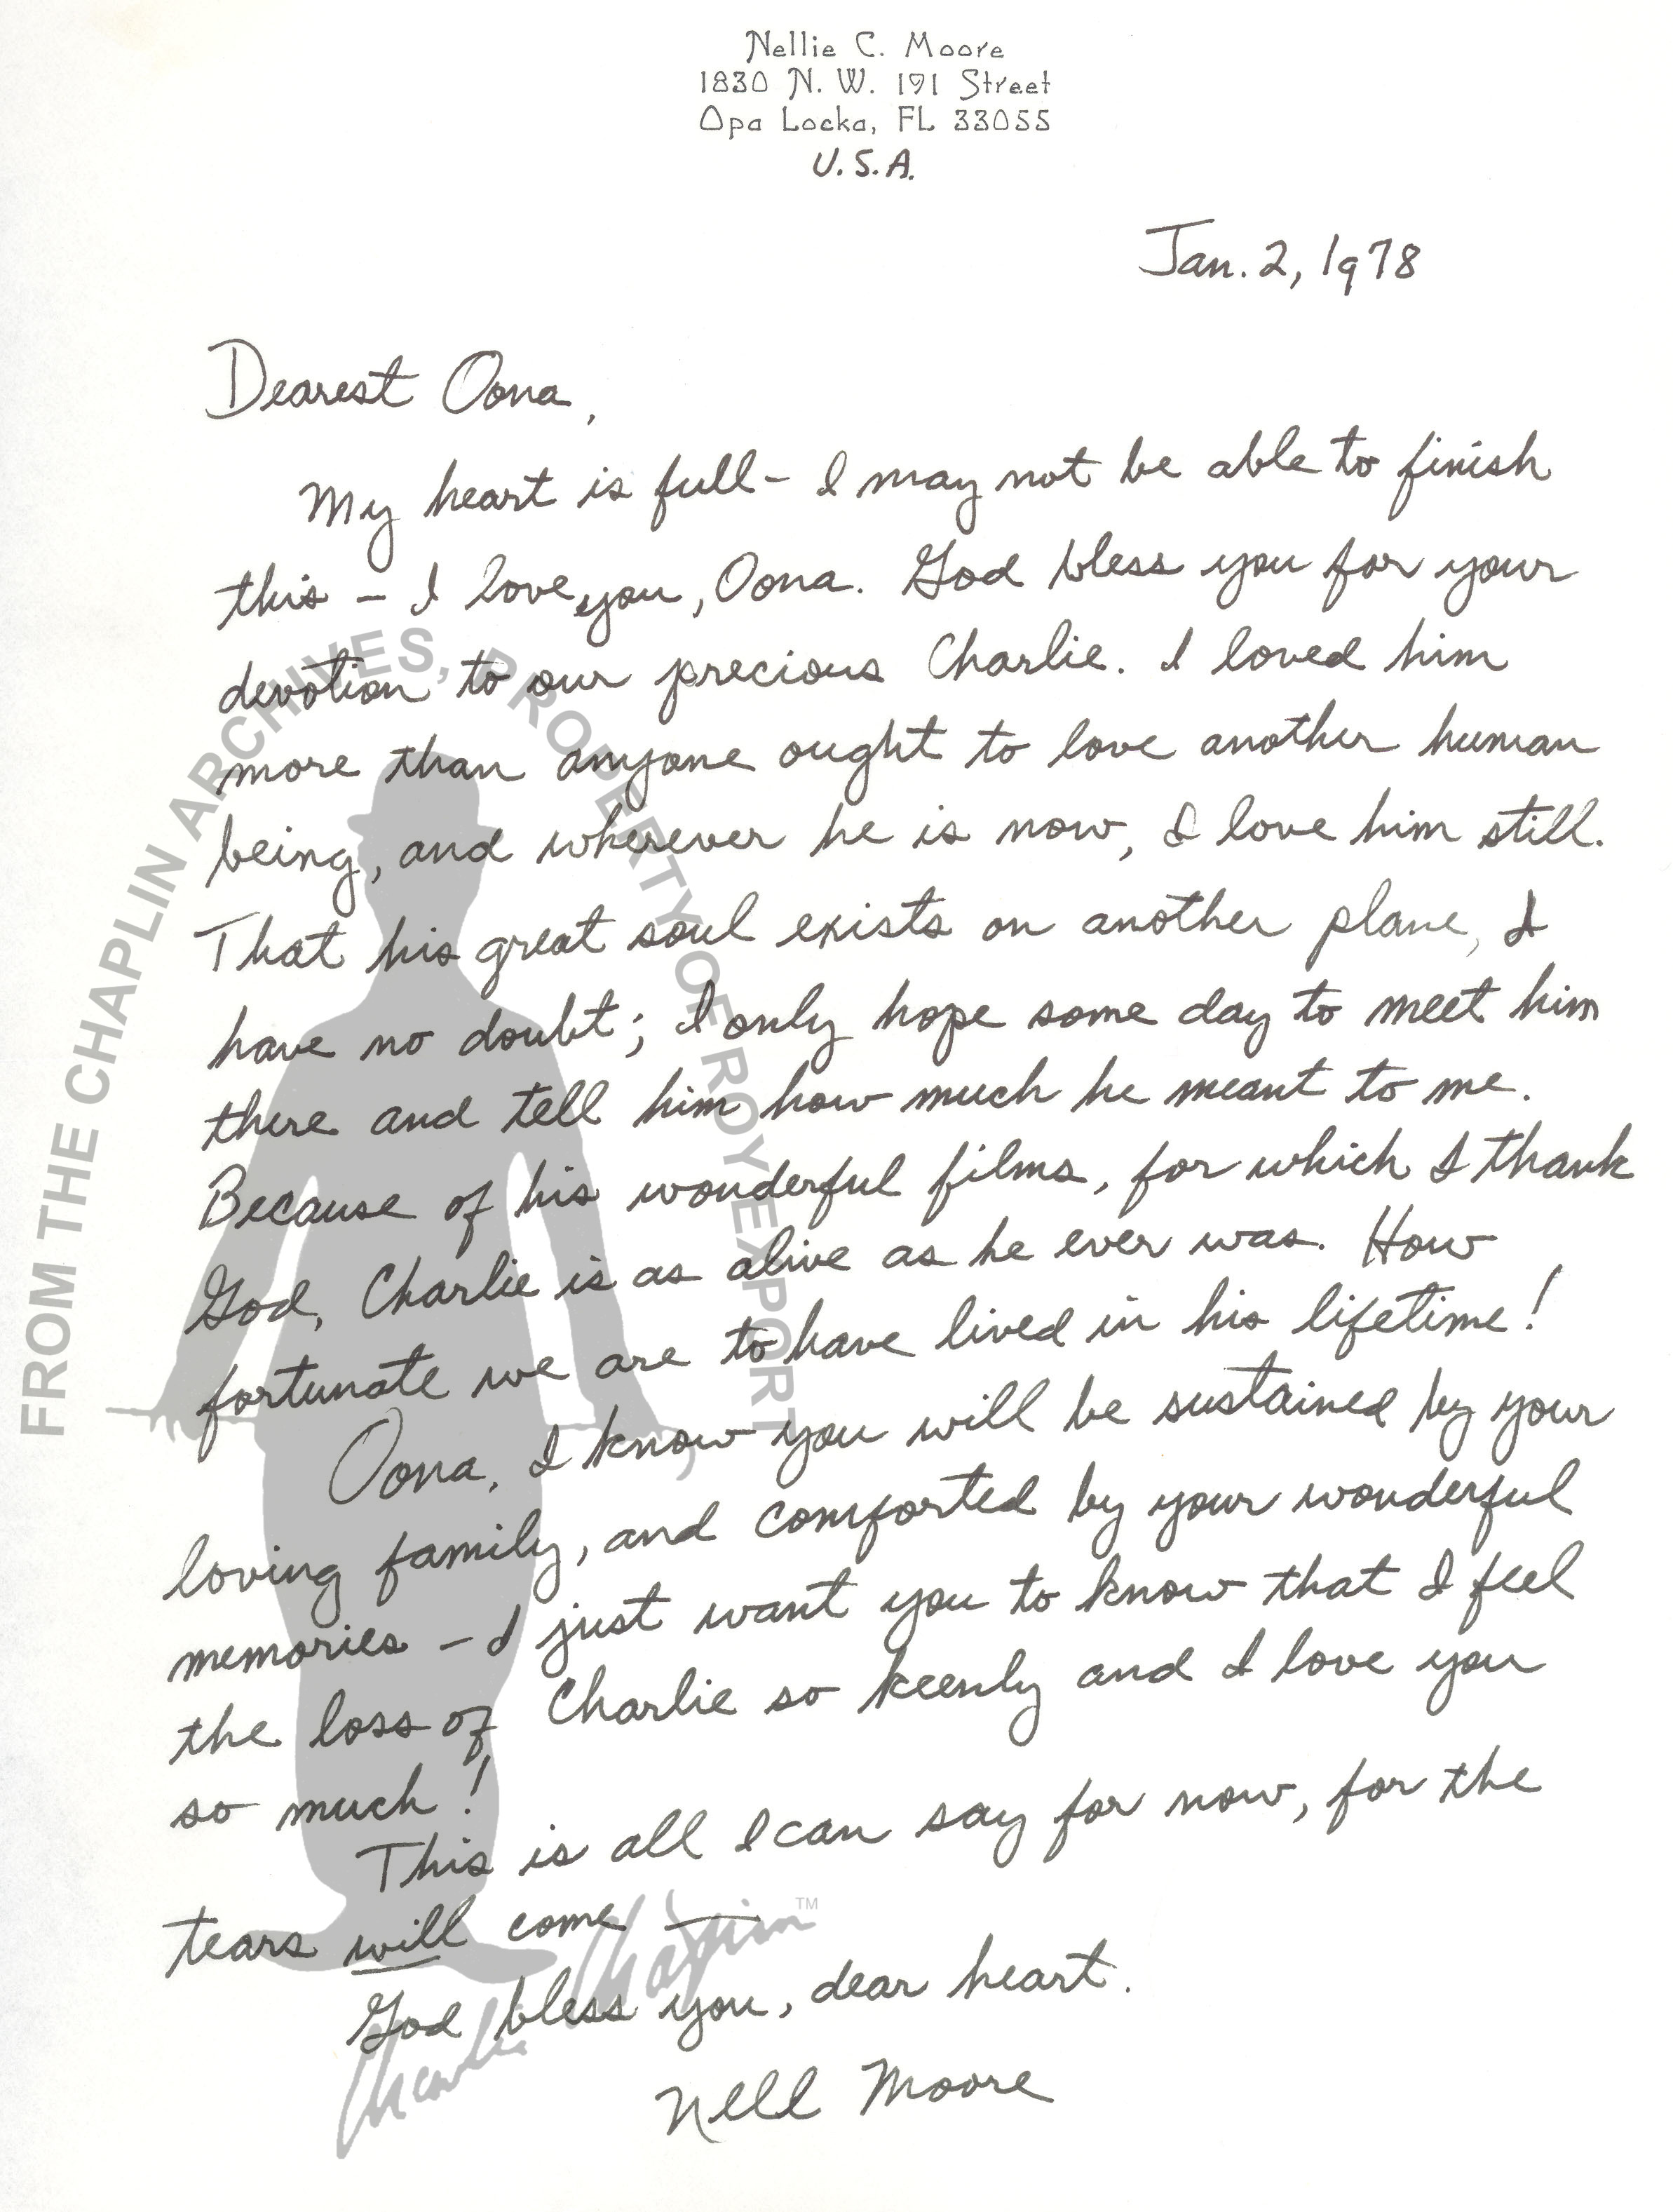 Nellie C. Moore
1830 N. W. 191 Street
Opa Locka, FL 33055
U.S.A.
Jan. 2, 1978
Dearest Oona,
My heart is full - I may not be able to finish
this - I love you, Oona. God bless you for your
devotion to our precious Charlie. I loved him
more than anyone ought to love another human
being, and wherever he is now, I love him still.
That his great soul exists on another plane, I
have no doubt; I only hope some day to meet him
there and tell him how much he meant to me.
Because of his wonderful films, for which I thank
God, Charlie is as alive as he ever was. How
fortunate we are to have lived in his lifetime!
Oona, I know you will be sustained by your
loving family, and comforted by your wonderful
memories - I just want you to know that I feel
the loss of Charlie so keenly and I love you
so much!
This is all I can say for now, for the
tears will come —
God bless you, dear heart.
Nell Moore
FROM THE CHAPLIN ARCHIVES, PROPERTY OF ROY EXPORT
Charlie Chaplin™